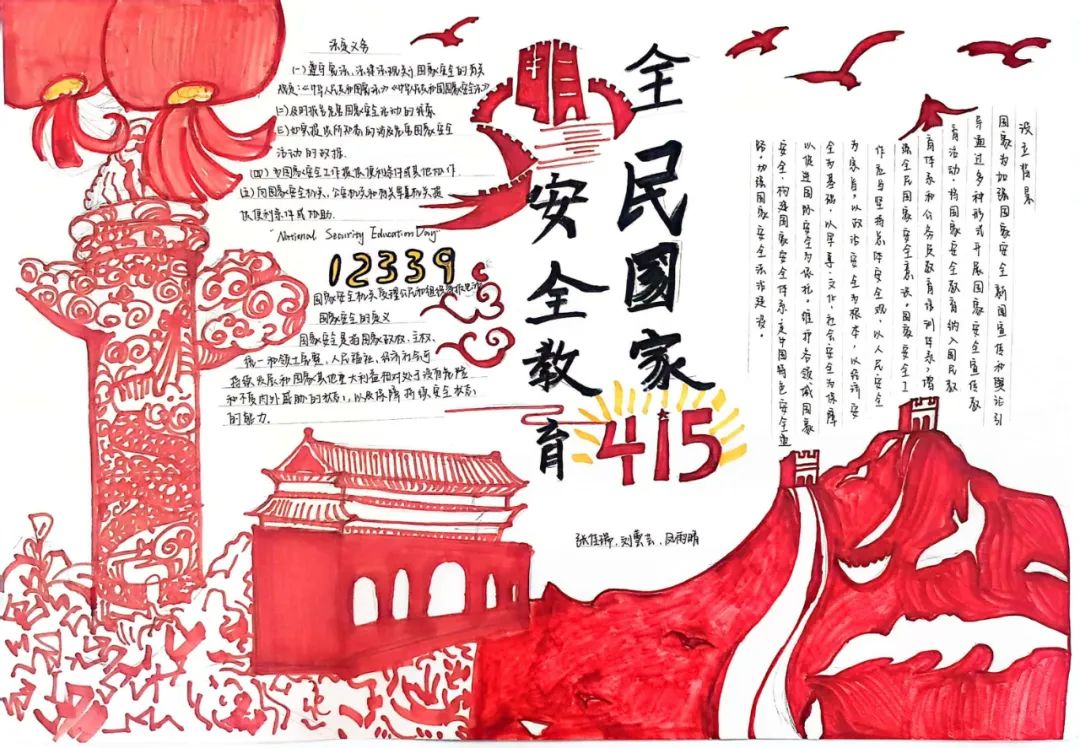 全民國家
安全教育
415
法定义务
(一)遵守宪法、法律法规关于国家安全的有关
规定:《中华人民共和国宪法》《中华人民共和国国家安全法》
(二)及时报告危害国家安全活动的线索
(三)如实提供所知悉的涉及危害国家安全
活动的证据.
(四)为国家安全工作提供便利条件或其他协作
(五)向国家安全机关、公安机关和有关军事机关提
供便利条件或协助.
"National Security Education Day"
12339
国家安全机关受理公民和组织举报电话
国家安全的定义
国家安全是指国家政权、主权、
统一和领土完整、人民福祉、经济社会可
持续发展和国家其他重大利益相对处于没有危险
和不受内外威胁的状态,以及保障持续安全状态
的能力.
设立背景
国家为加强国家安全新闻宣传和舆论引
导通过多种形式开展国家安全宣传教
育活动,将国家安全教育纳入国民教
育体系和公务员教育培训体系,增
强全民国家安全意识。国家安全工
作应当坚持总体安全观,以人民安全
为宗旨,以政治安全为根本,以经济安
全为基础,以军事、文化、社会安全为保障
以促进国际安全为依托,维护各领域国家
安全,构建国家安全体系,走中国特色安全道
路,加强国家安全法治建设。